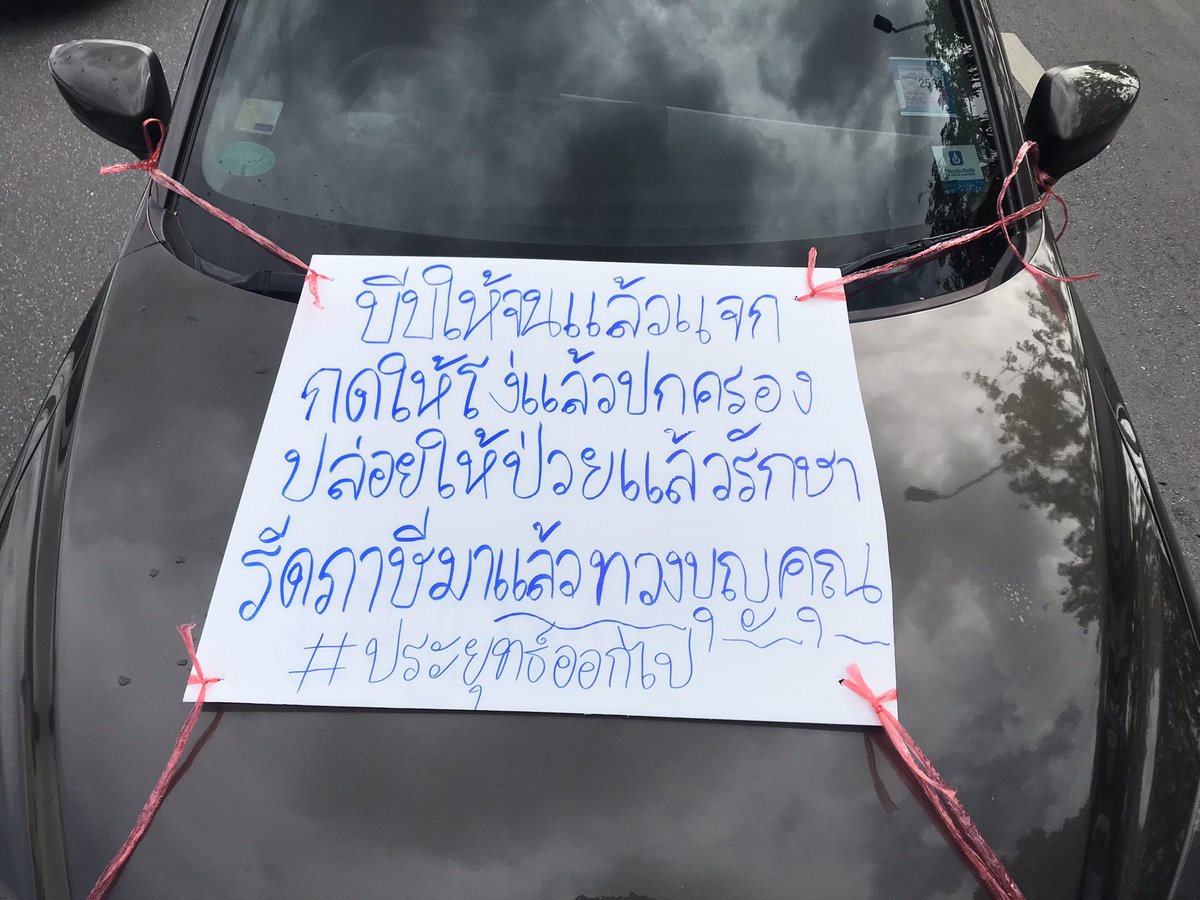 บีบให้จนแล้วแจก
กดให้โง่แล้วปกครอง
ปล่อยให้ป่วยแล้วรักษา
รีดภาษีมาแล้วทวงบุญคุณ
#ประยุทธ์ออกไป